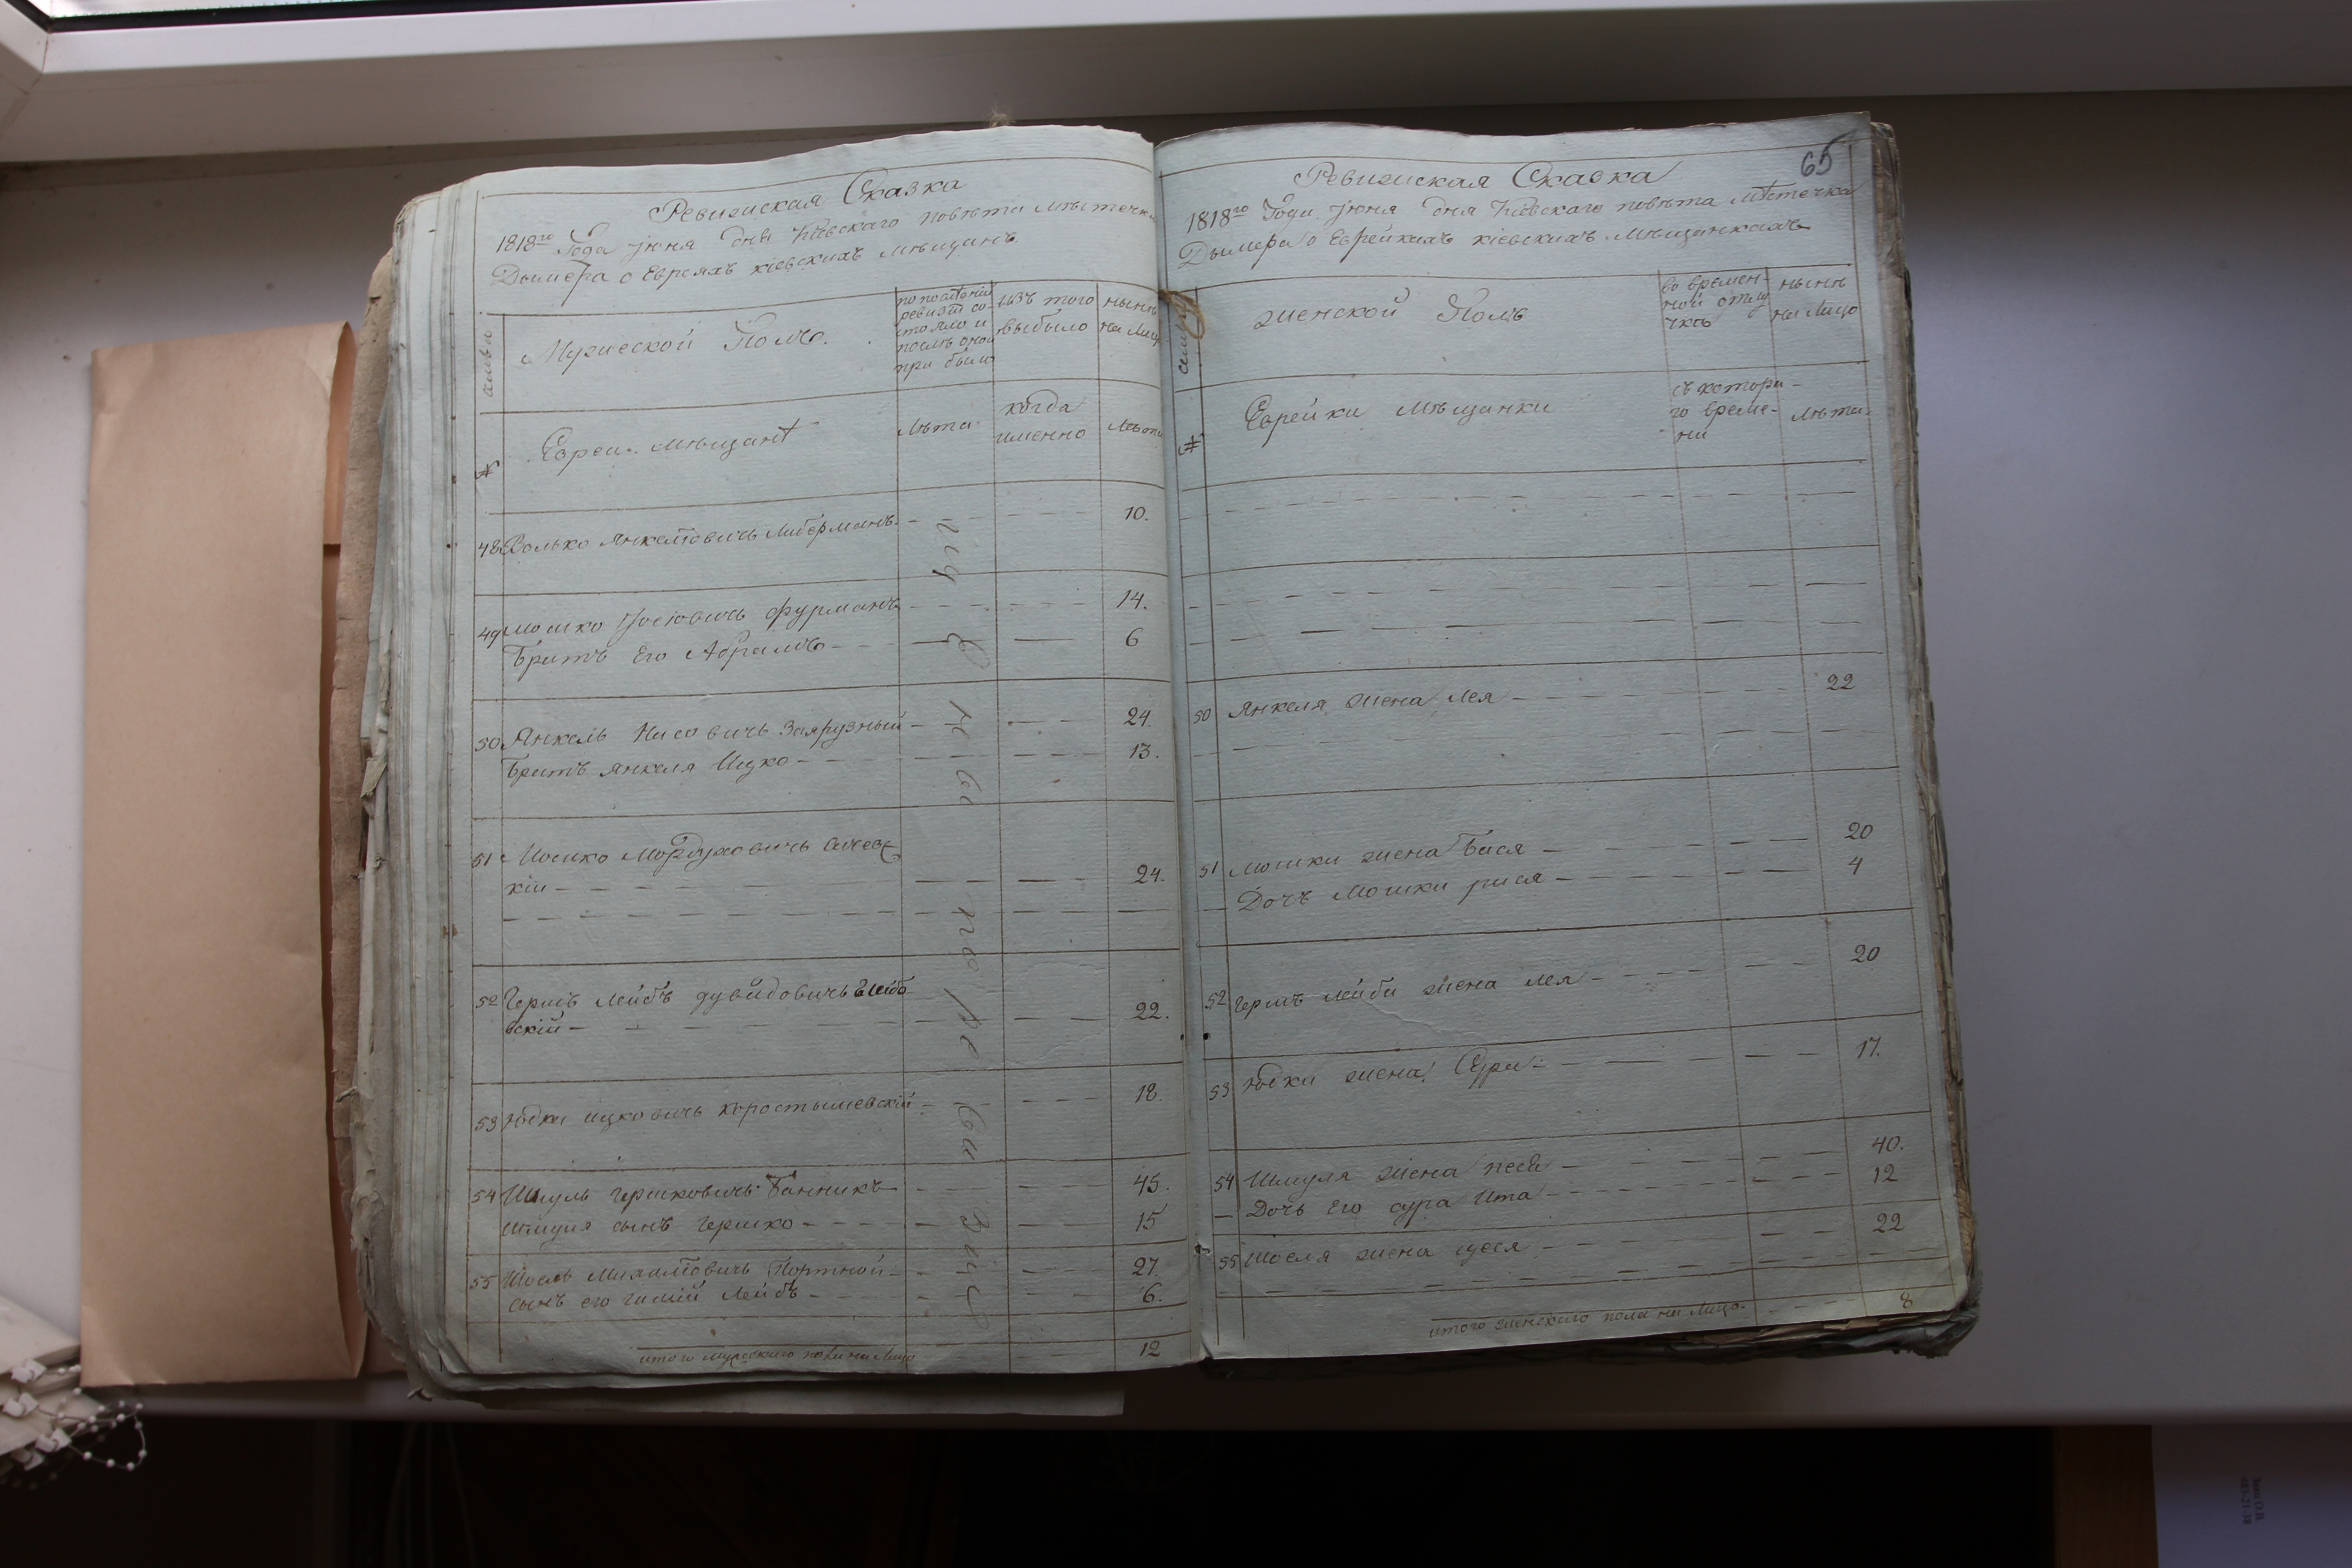 Ревизиская Сказка
1818го Года июня дня Киевскаго повѣта Мѣстечка
Дымера о Евреяхъ киевскихъ мѣщанъ
фамилии
Мужеской Полъ.
по послѣдней
ревизіи со-
стояло и
послѣ оной
при было
изъ того
выбыло
нынѣ
на Лицо
№
Евреи мѣщанѣ
Лѣта
когда
именно
Лѣта
48 Волько Янкелiовичъ Либерманъ 10.
49 Мошко Iосiовичъ фурманъ 14.
Братъ Его Абрамъ 6
50 Янкель Насовичъ Заярузный 24.
Братъ янкеля Ицко 13.
51 Мошко Мордуховичъ
кiи 24.
52 Гершъ Лейбъ дувидовичъ Глебо
вскiй 22.
53 Юдка ицковичъ коростышевскiй 18.
54 Шмуль Гершковичъ Банникъ 45.
Шмуля сынъ Гершко 15
55 Шосель Михалiовичъ Портной 27.
сынъ его Лейбъ 6.
итого мужескаго пола на Лицо 12
65
Ревизиская Сказка
1818го Года июня дня Киевскаго повѣта Мѣстечка
Дымера о Еврейкахъ кiевскихъ мѣщанкахъ
женской Полъ
во времен-
ной отлу
чкѣ
нынѣ
на Лицо
№
Еврейки мѣщанки
съ котора-
го време-
ни
лѣта
50 Янкеля жена Лея 22
51 Мошки жена Бася 20
Дочъ Мошки рися 4
52 Гершъ Лейби жена Лея 20
53 Юдки жена Сура 17.
54 Шмуля жена песя 40.
Дочь Его сура Ита 12
55 Шоселя жена 22
итого женскаго пола на Лицо 8